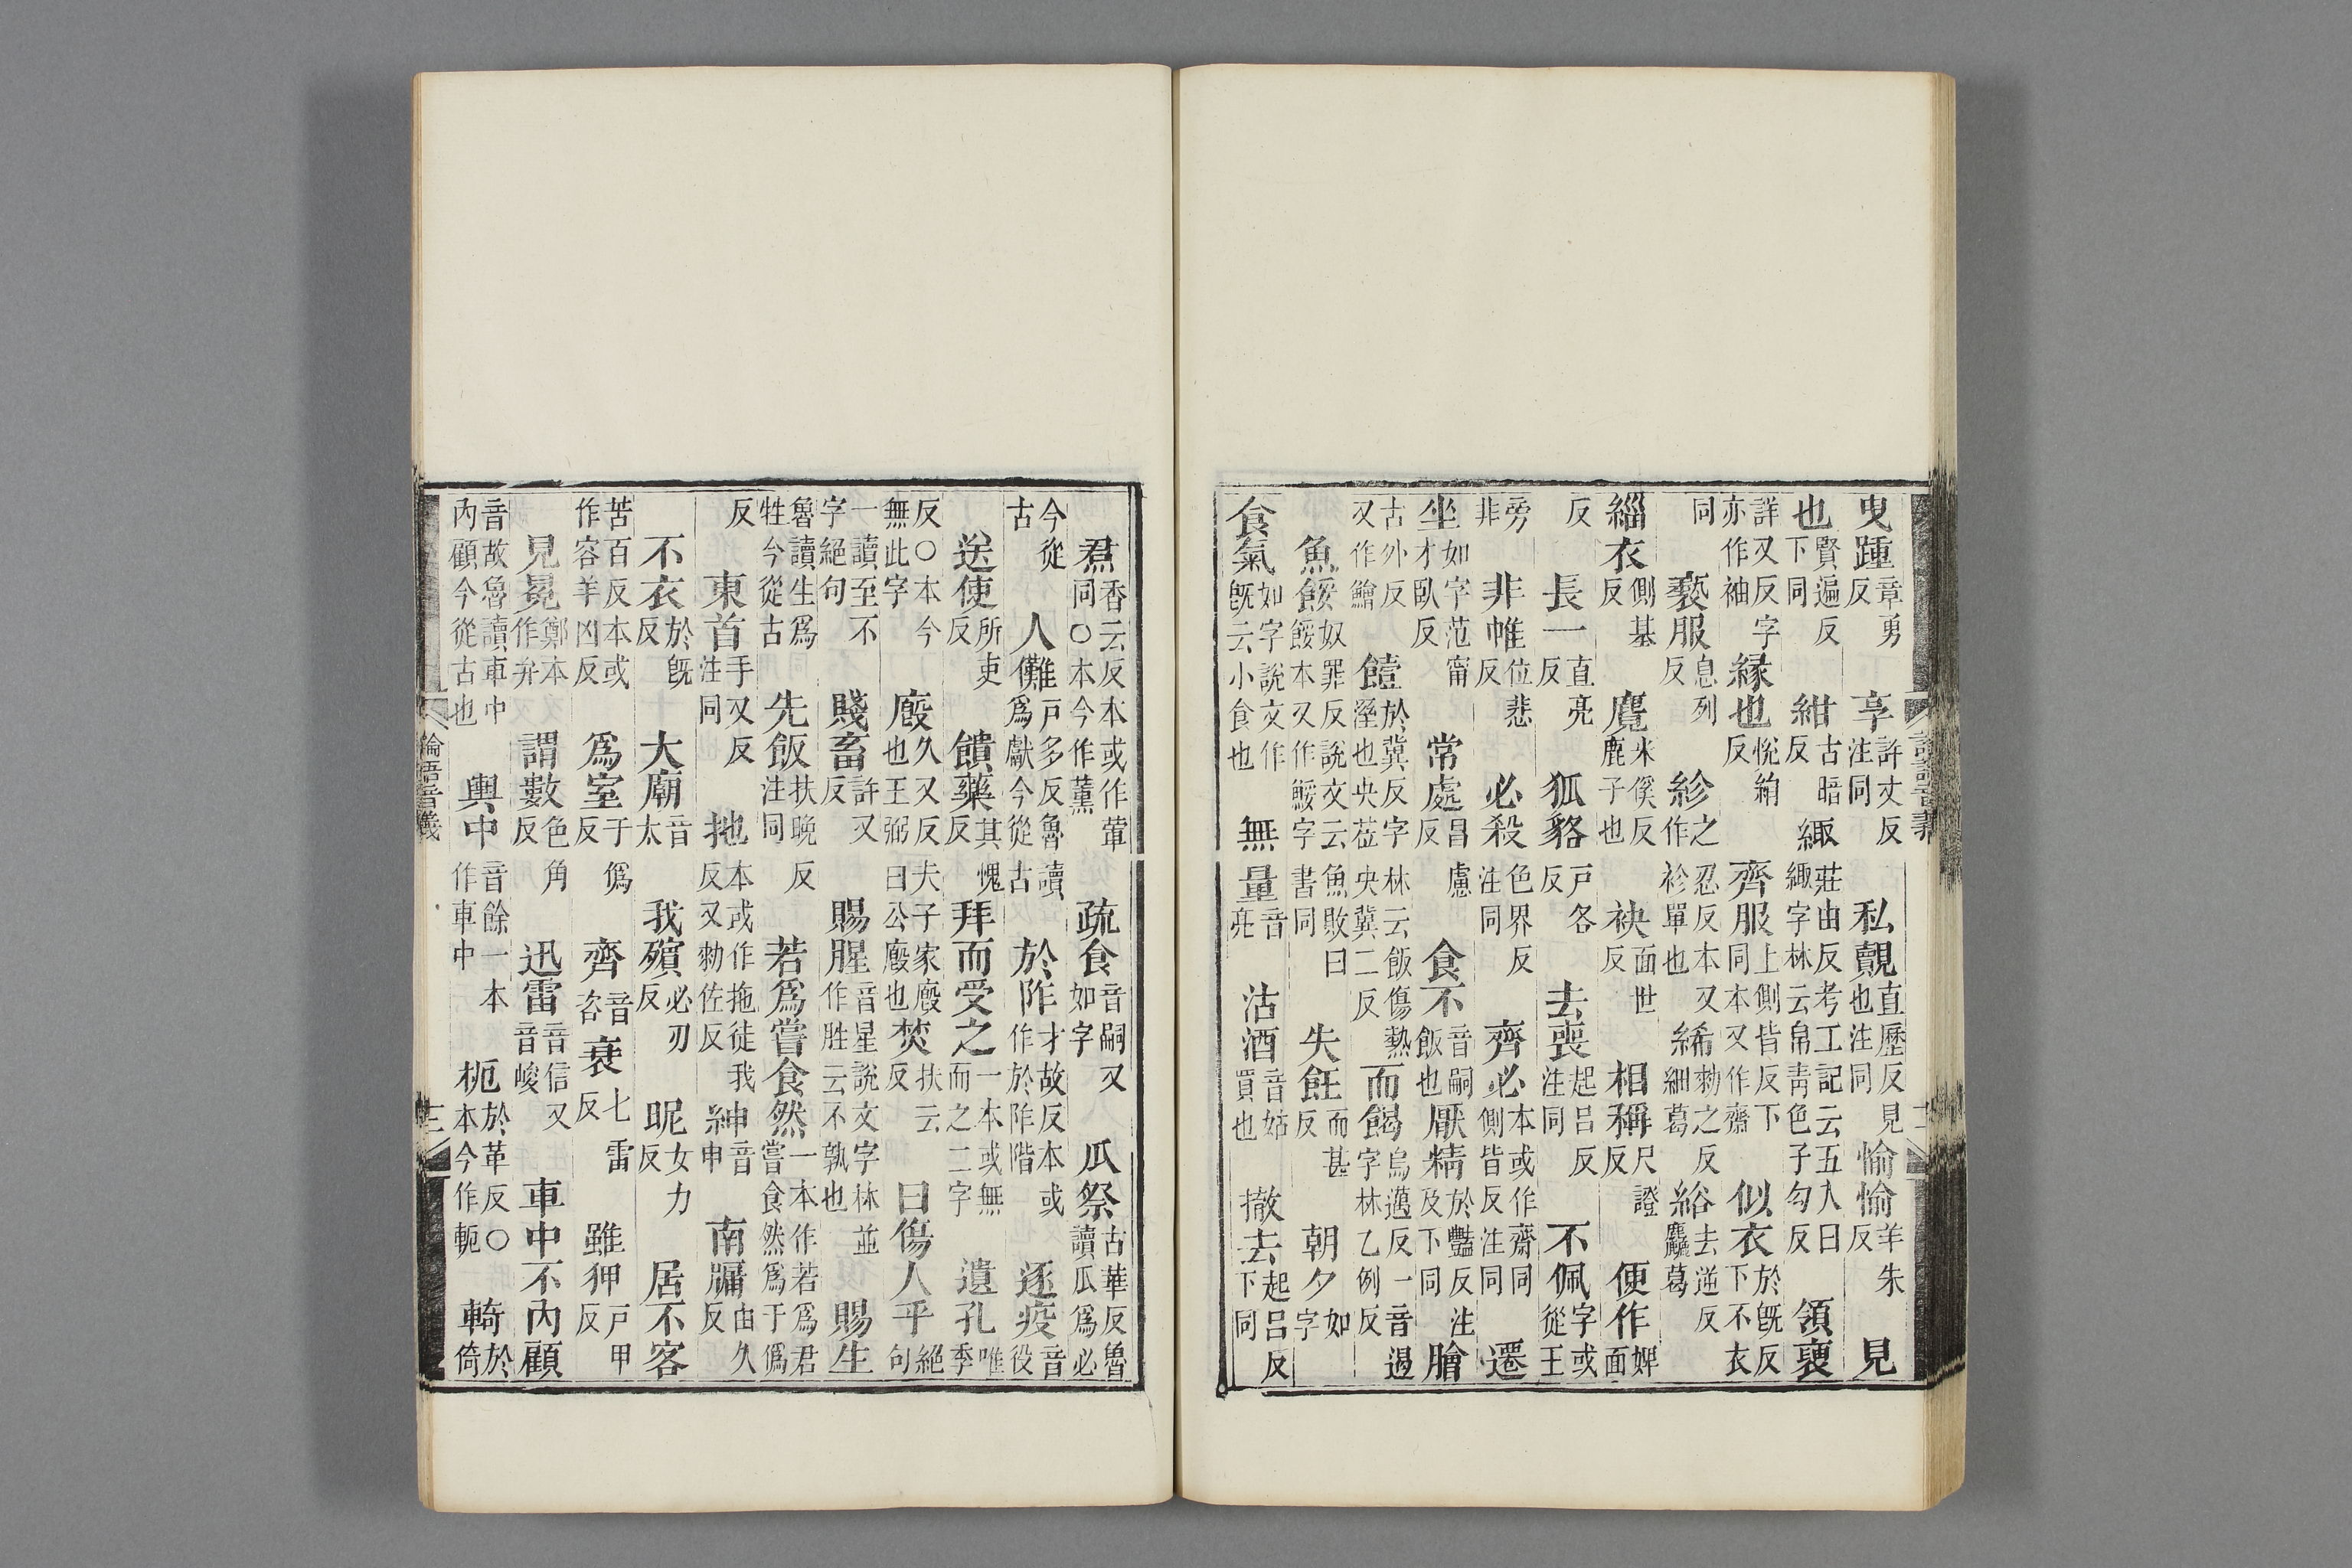 曳踵章勇反 享許丈反注同 私覿直歷反見也注同 愉愉羊朱反 見
也賢遍反下同 紺古暗反 緅莊由反考工記云五入曰緅字林云帛青色子勾反 領褏
詳又反字亦作袖 緣也悅絹反 齊服上側皆反下同本又作齋 似衣於既反下不衣
同 褻服息列反 紾之忍反本又作袗單也 絺勑之反細葛 綌去逆反麤葛
緇衣側基反 麑米傒反鹿子也 袂面世反 相稱尺證反 便作婢面
反 長一直亮反 狐貉戶各反 去喪起呂反注同 不佩字或從王
旁非 非帷位悲反 必殺色界反注同 齊必本或作齋同側皆反注同 遷
坐如字范甯才臥反 常處昌慮反 食不音嗣飯也 厭精於豔反注及下同 膾
古外反又作鱠 饐於冀反字林云飯傷熱溼也央莅央冀二反 而餲烏邁反一音遏字林乙例反
魚餒奴罪反說文云魚敗曰餒本又作鮾字書同 失飪而甚反 朝夕如字
食氣如字說文作旣云小食也 無量音亮 沽酒音姑買也 撤去起呂反下同
論語音義
焄香云反本或作葷同○本今作薰 疏食音嗣又如字 瓜祭古華反魯讀瓜為必
今從古 人儺戶多反魯讀為獻今從古 於阼才故反本或作於阼階 逐疫音役
送使所吏反 饋藥其愧反 拜而受之一本或無而之二字 遺孔唯季
反○本今無此字 廄久又反夫子家廄也王弼曰公廄也 焚扶云反 曰傷人乎絕句
一讀至不字絕句 賤畜許又反 賜腥音星說文字林並作胜云不孰也 賜生
魯讀生為牲今從古 先飯扶晚反注同 若為嘗食然一本作若為君嘗食然為于偽
反 東首手又反注同 拖本或作拖徒我反又勑佐反 紳音申 南牖由久反
不衣於旣反 大廟音太 我殯必刃反 昵女力反 居不客
苦百反本或作容羊凶反 為室于偽反 齊音咨 衰七雷反 雖狎戶甲反
見冕鄭本作弁 謂數色角反 迅雷音信又音峻 車中不內顧
音故魯讀車中內顧今從古也 輿中音餘一本作車中 枙於革反○本今作軛 輢於倚
論語音義 十三